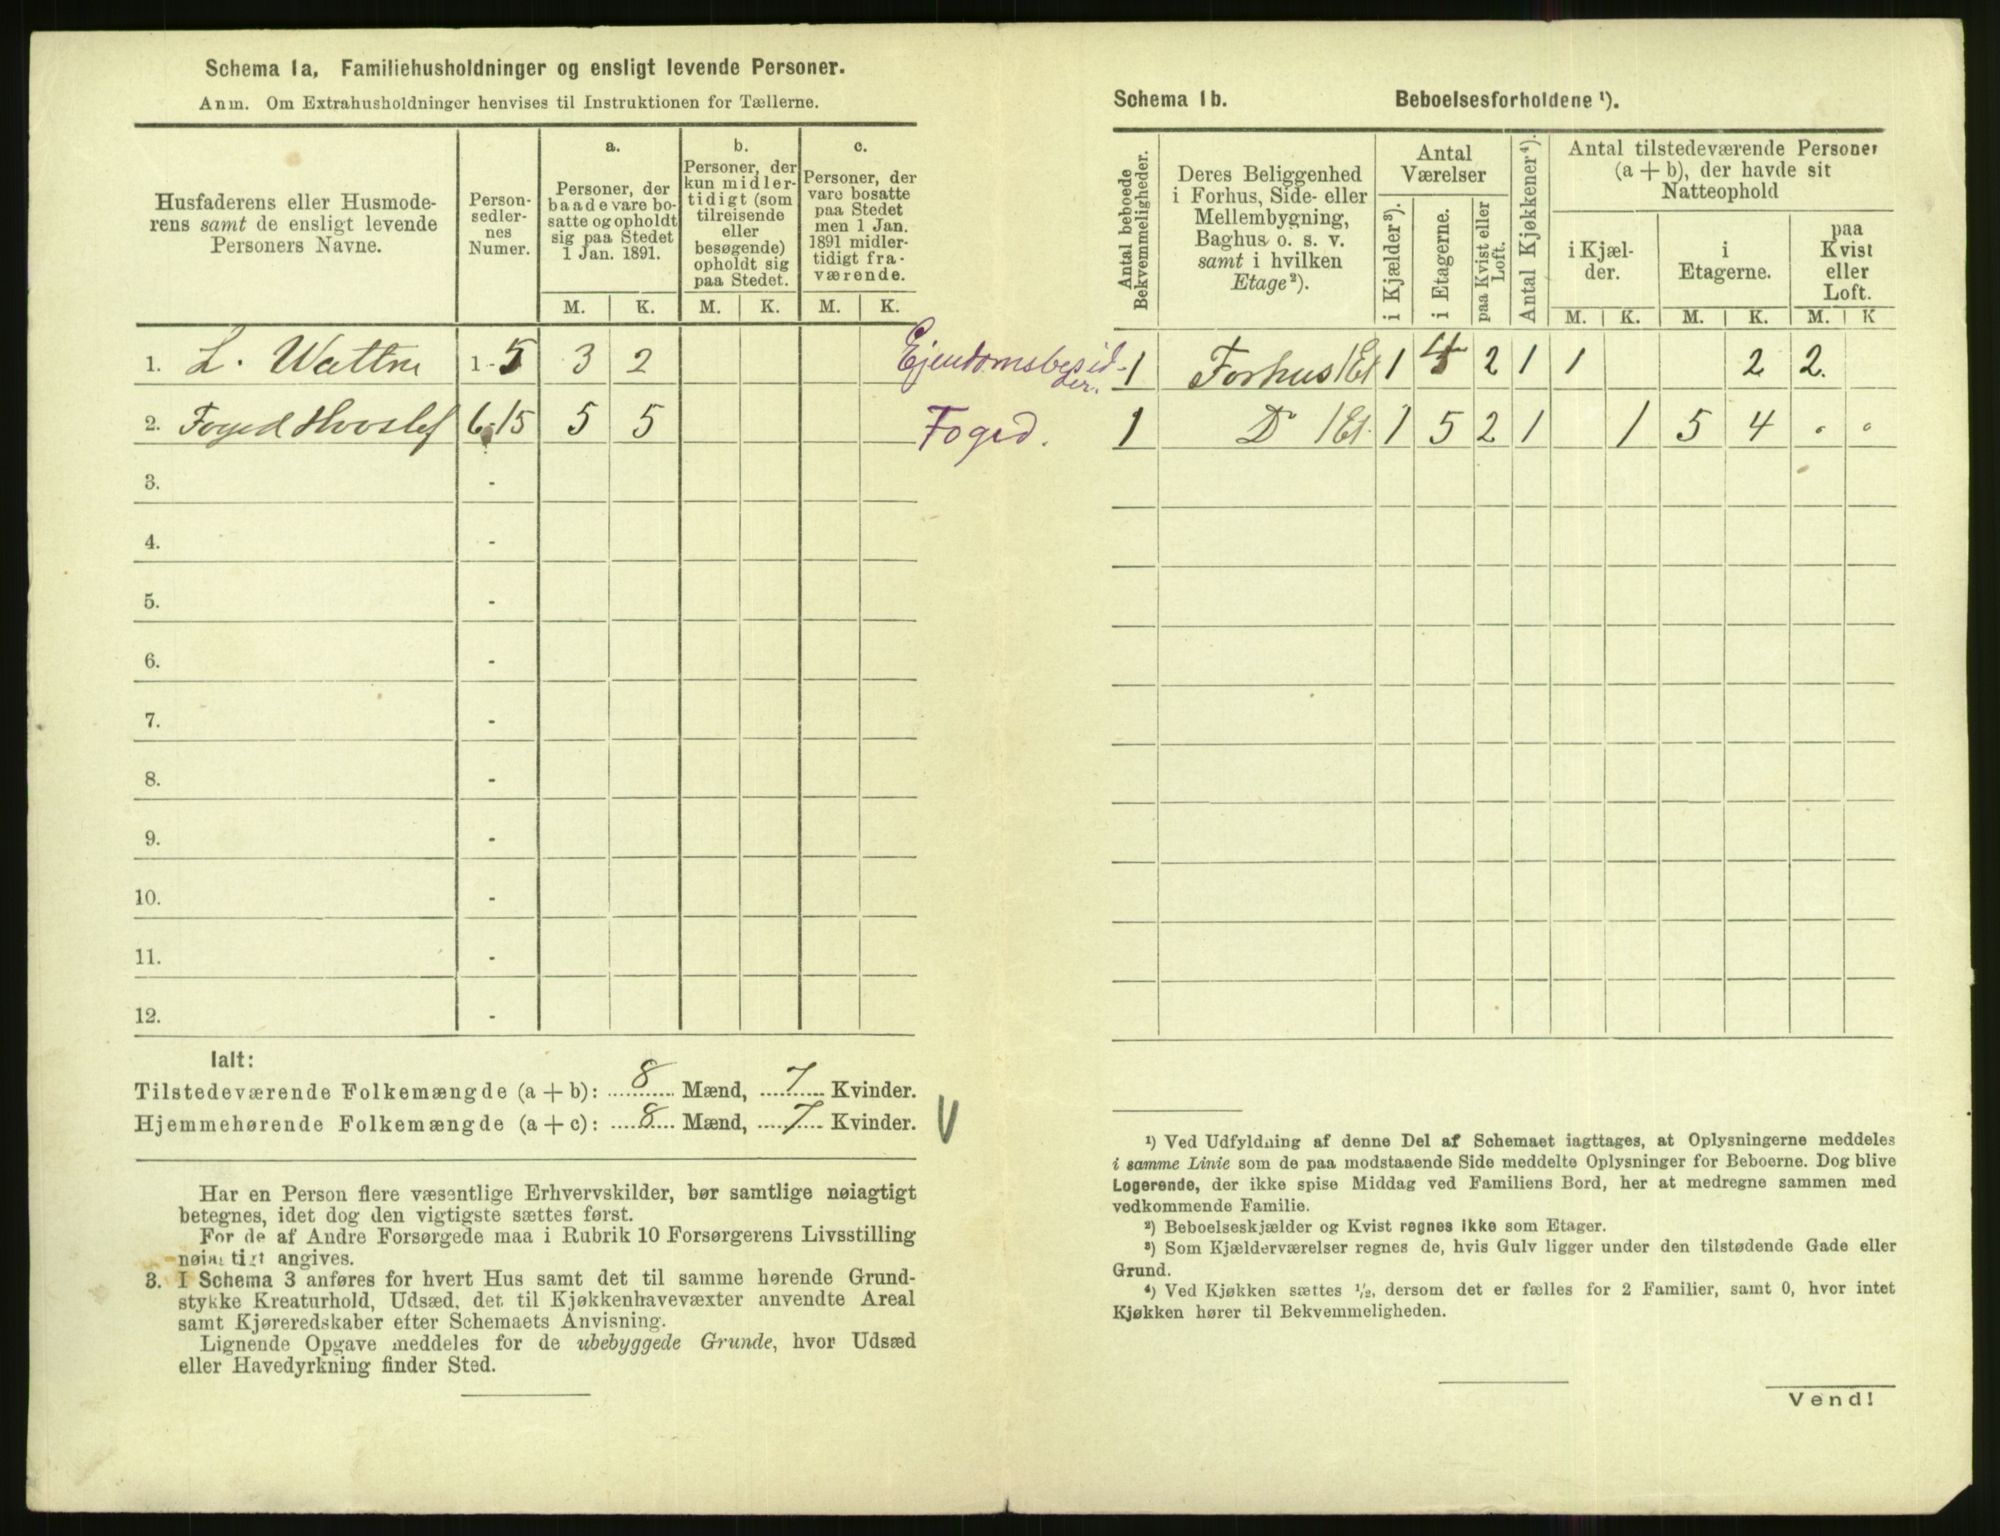 Schema 1a, Familiehusholdninger og ensligt levende Personer.
Anm. Om Extrahusholdninger henvises til Instruktionen for Tællerne.
Husfaderens eller Husmode-
rens samt de ensligt levende
Personers Navne.
Person-
sedler-
nes
Numer.
a.
Personer, der
baade vare bo-
satte og opholdt
sig paa Stedet
1 Jan. 1891.
b.
Personer, der
kun midler-
tidigt (som
tilreisende
eller
besøgende)
opholdt sig
paa Stedet.
c.
Personer, der
vare bosatte
paa Stedet
men 1 Jan.
1891 midler-
tidigt fra-
værende.
M. K. M. K. M. K.
1. L. Wattne 1-5 3 2 Ejendomsbesid-
der.
2. Foged Hvoslef 6-15 5 5 Foged.
3. -
4. -
5. -
6. -
7. -
8. -
9. -
10. -
11. -
12. -
Ialt:
Tilstedeværende Folkemængde (a + b): 8 Mænd, 7 Kvinder.
Hjemmehørende Folkemængde (a + c): 8 Mænd, 7 Kvinder. V
Har en Person flere væsentlige Erhvervskilder, bør samtlige nøiagtigt
betegnes, idet dog den vigtigste sættes først.
For de af Andre Forsørgede maa i Rubrik 10 Forsørgerens Livsstilling
nøiagtigt angives.
3. I Schema 3 anføres for hvert Hus samt det til samme hørende Grund-
stykke Kreaturhold, Udsæd, det til Kjøkkenhavevæxter anvendte Areal
samt Kjøreredskaber efter Schemaets Anvisning.
Lignende Opgave meddeles for de ubebyggede Grunde, hvor Udsæd
eller Havedyrkning finder Sted.
Schema 1b. Beboelsesforholdene ¹).
Antal beboede
Bekvemmeligheder.
Deres Beliggenhed
i Forhus, Side- eller
Mellembygning,
Baghus o. s. v.
samt i hvilken
Etage ²).
Antal
Værelser
i Kjælder ³).
i Etagerne.
paa Kvist eller
Loft.
Antal Kjøkkener ⁴).
Antal tilstedeværende Personer
(a + b), der havde sit
Natteophold
i Kjæl-
der.
i
Etagerne.
paa
Kvist
eller
Loft.
M. K. M. K. M. K
1 Forhus 1 Et 1 4 2 1 1 2 2.
1 Do 1 Et. 1 5 2 1 1 5 4 . .
¹) Ved Udfyldning af denne Del af Schemaet iagttages, at Oplysningerne meddeles
i samme Linie som de paa modstaaende Side meddelte Oplysninger for Beboerne. Dog blive
Logerende, der ikke spise Middag ved Familiens Bord, her at medregne sammen med
vedkommende Familie.
²) Beboelseskjælder og Kvist regnes ikke som Etager.
³) Som Kjælderværelser regnes de, hvis Gulv ligger under den tilstødende Gade eller
Grund.
⁴) Ved Kjøkken sættes ½, dersom det er fælles for 2 Familier, samt 0, hvor intet
Kjøkken hører til Bekvemmeligheden.
Vend!